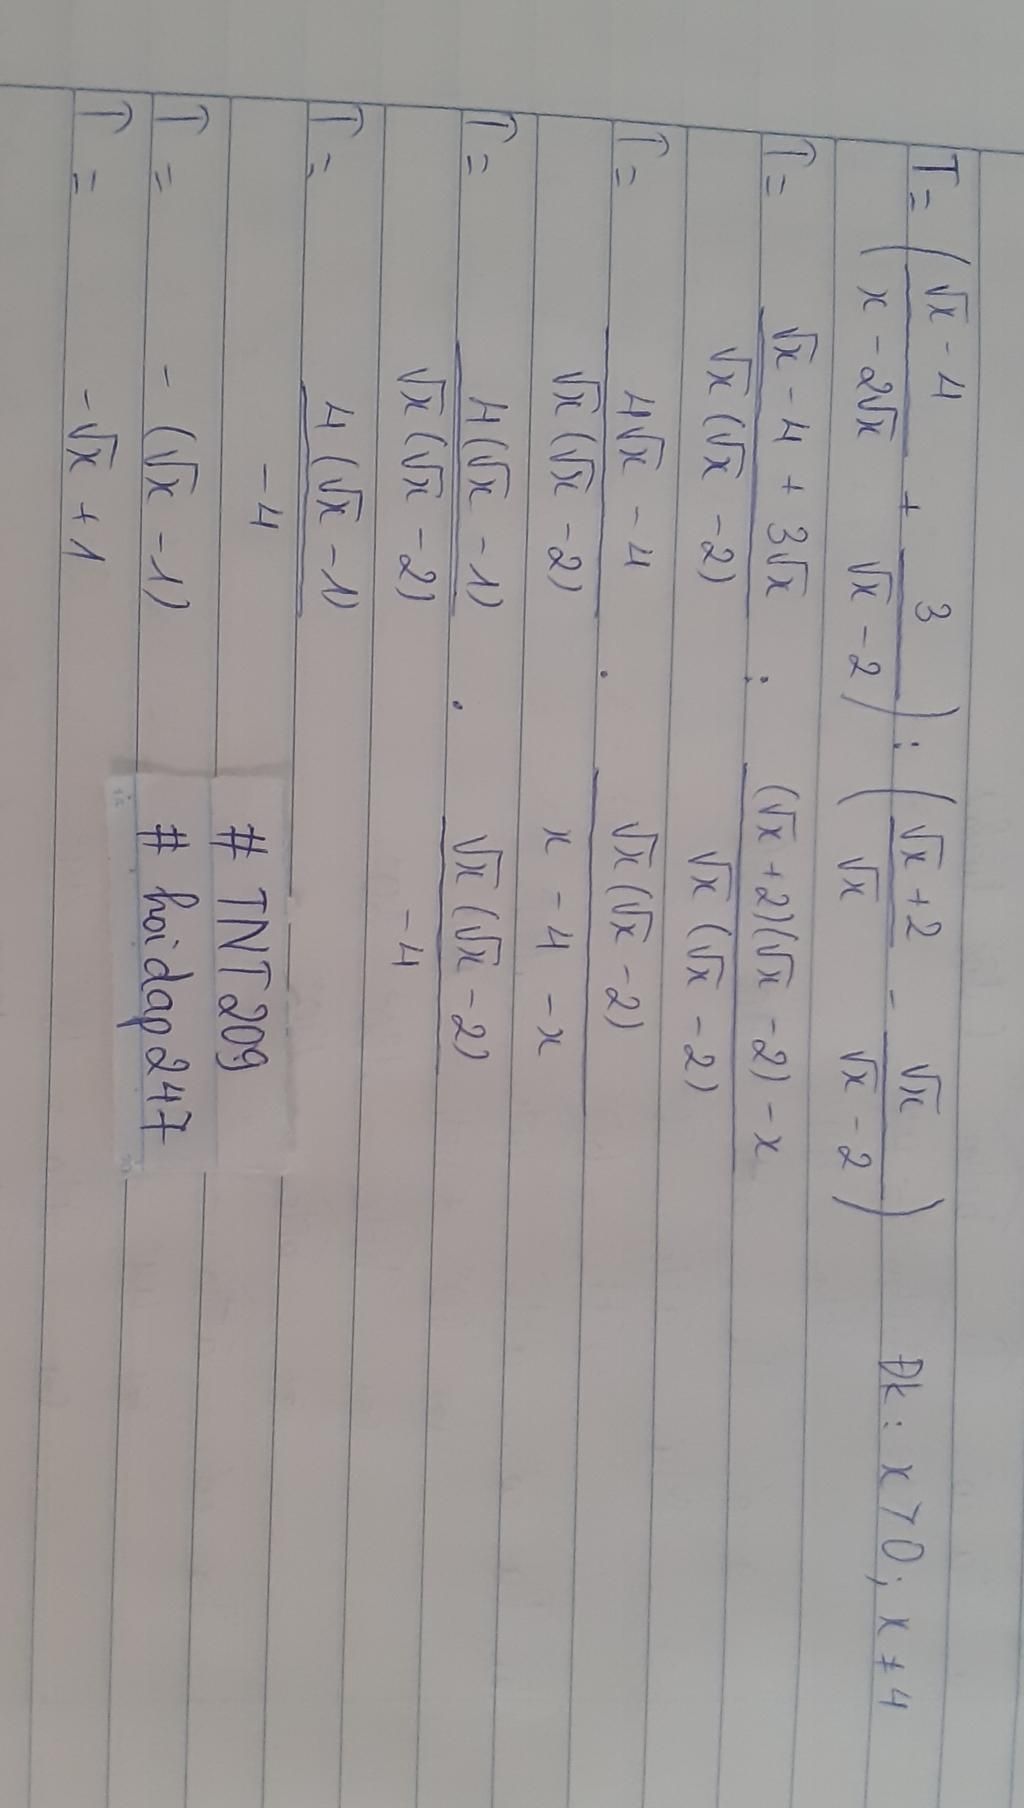 T = ( (√x - 4)/(x - 2√x) + 3/(√x - 2) ) : ( (√x + 2)/√x - √x/(√x - 2) ) Đk: x > 0; x ≠ 4
T = (√x - 4 + 3√x)/(√x (√x - 2)) : ((√x + 2)(√x - 2) - x)/(√x (√x - 2))
T = (4√x - 4)/(√x (√x - 2)) . (√x (√x - 2))/(x - 4 - x)
T = (4(√x - 1))/(√x (√x - 2)) . (√x (√x - 2))/(-4)
T = (4(√x - 1))/(-4)
T = -(√x - 1)
T = -√x + 1
# TNT209
# hoidap247